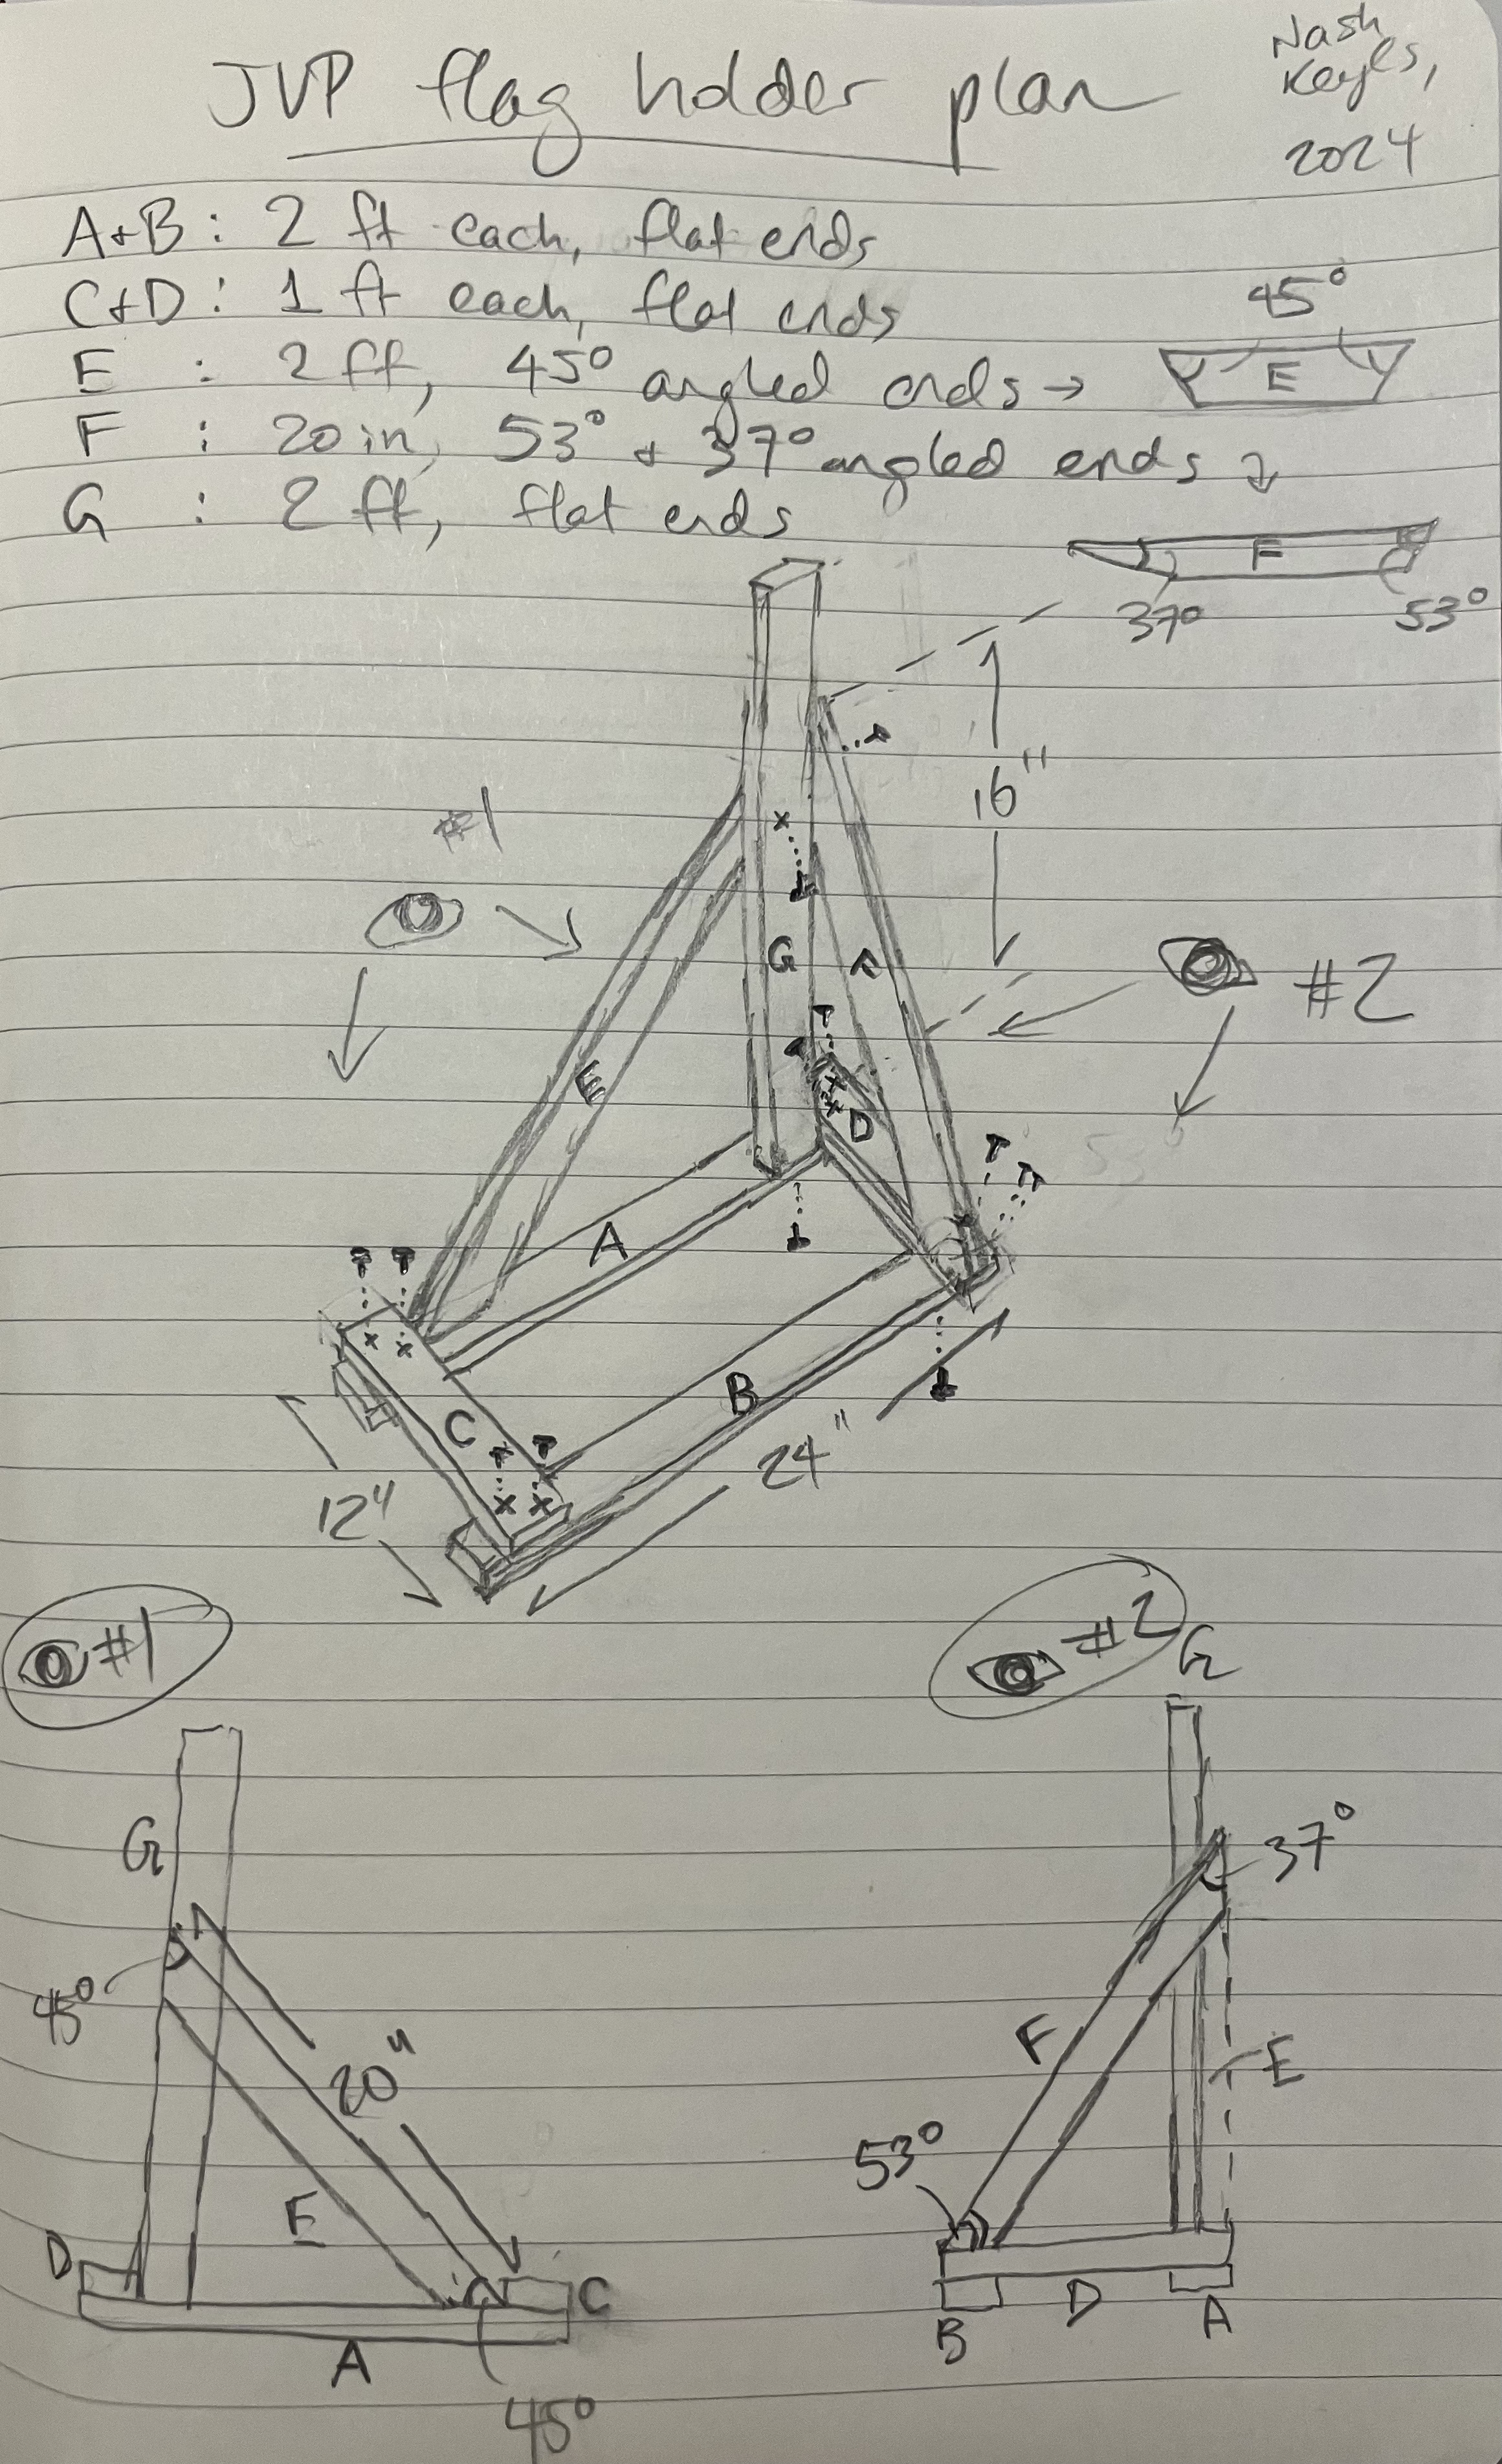 JVP flag holder plan
Nash
Keyles,
2024
A+B: 2 ft each, flat ends
C+D: 1 ft each, flat ends
E : 2 ft, 45° angled ends →
45°
E
F : 20 in, 53° + 37° angled ends
G : 2 ft, flat ends
F
37°
53°
16"
#1
G
#2
E
D
A
B
C
24"
12"
#1
#2
G
G
37°
45°
20"
F
E
53°
E
D
C
A
B
D
A
45°